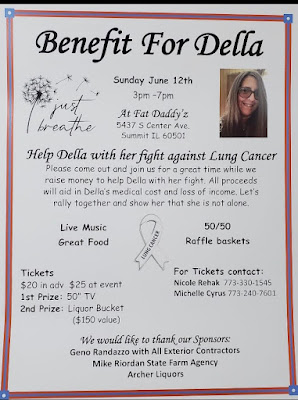 Benefit For Della
Sunday June 12th
3pm -7pm
just
breathe
At Fat Daddy'z
5437 S Center Ave.
Summit IL 60501
Help Della with her fight against Lung Cancer
Please come out and join us for a great time while we
raise money to help Della with her fight. All proceeds
will aid in Della's medical cost and loss of income. Let's
rally together and show her that she is not alone.
Live Music
Great Food
LUNG CANCER
50/50
Raffle baskets
Tickets
$20 in adv $25 at event
1st Prize: 50" TV
2nd Prize: Liquor Bucket
($150 value)
For Tickets contact:
Nicole Rehak 773-330-1545
Michelle Cyrus 773-240-7601
We would like to thank our Sponsors:
Geno Randazzo with All Exterior Contractors
Mike Riordan State Farm Agency
Archer Liquors